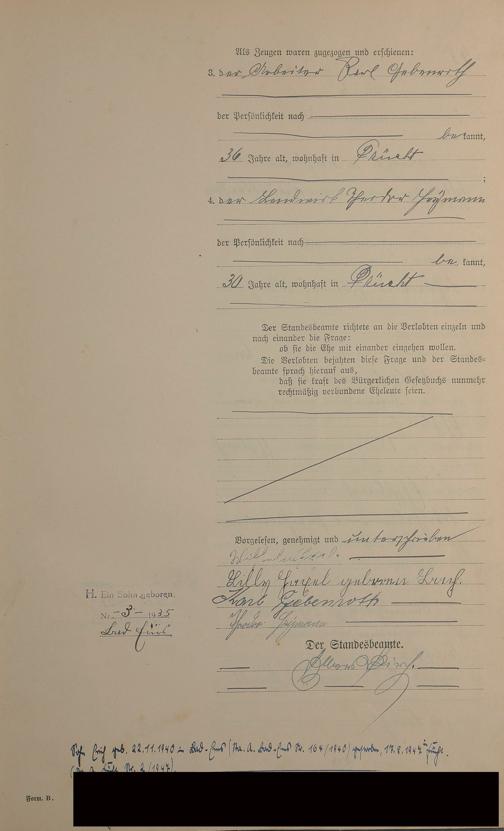 Als Zeugen waren zugezogen und erschienen:
3. der Arbeiter Karl Gebenroth
der Persönlichkeit nach
be kannt,
36 Jahre alt, wohnhaft in
;
4. der Landwirt Theodor Heymann
der Persönlichkeit nach
be kannt,
30 Jahre alt, wohnhaft in
Der Standesbeamte richtete an die Verlobten einzeln und
nach einander die Frage:
ob sie die Ehe mit einander eingehen wollen.
Die Verlobten bejahten diese Frage und der Standes-
beamte sprach hierauf aus,
daß sie kraft des Bürgerlichen Gesetzbuchs nunmehr
rechtmäßig verbundene Eheleute seien.
Vorgelesen, genehmigt und unterschrieben
Lilly geborene
Karl Gebenroth
Der Standesbeamte.
H. Ein Sohn geboren
Nr. 3 1935
Bad Ems
Sohn Erich geb. 22.11.1940 in Bad-Ems (Sta. A. Bad-Ems Nr. 164/1940) gestorben, 17.8.1947
Nr. 2/1947).
Form. B.